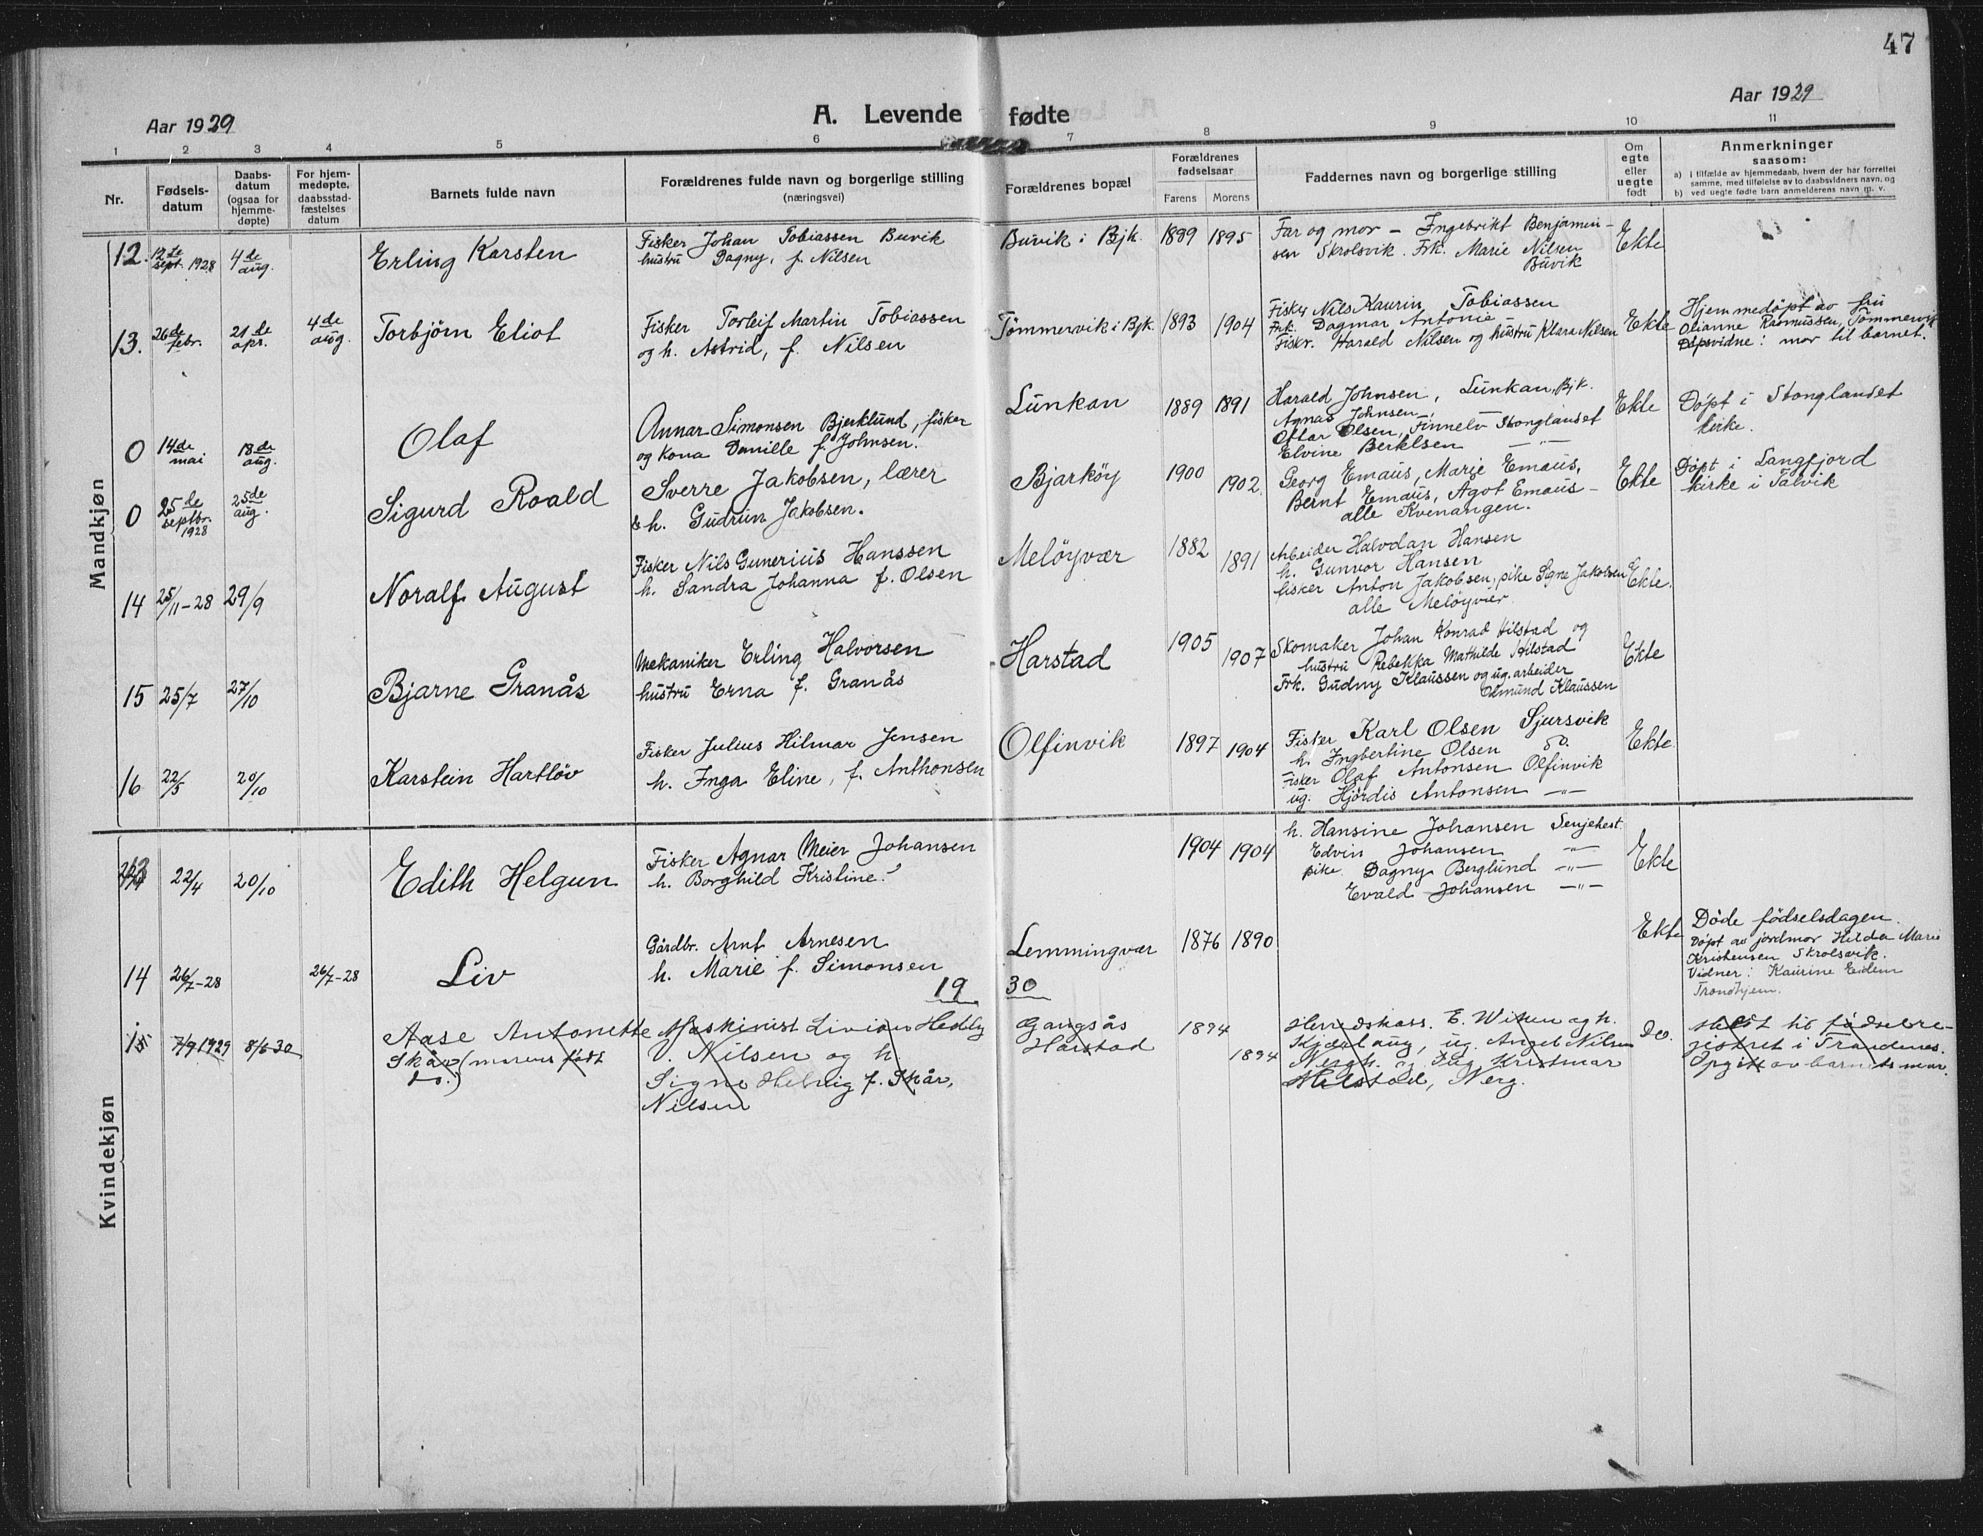 47
Aar 1929
A. Levende fødte
Aar 1929
1 2 3 4 5 6 7 8 9 10 11
Nr.
Fødsels-
datum
Daabs-
datum
(ogsaa for
hjemme-
døpte)
For hjem-
medøpte,
daabsstad-
fæstelses
datum
Barnets fulde navn
Forældrenes fulde navn og borgerlige stilling
(næringsvei)
Forældrenes bopæl
Forældrenes
fødselsaar
Farens Morens
Faddernes navn og borgerlige stilling
Om
egte
eller
uegte
født
Anmerkninger
saasom:
a) i tilfælde av hjemmedaab, hvem der har forrettet
samme, med tilføielse av to daabsvidners navn, og
b) ved uegte fødte barn anmelderens navn m. v.
Mandkjøn
12. 12te sept. 1928
4de aug.
Erling Karsten
Fisker Johan Tobiassen Buvik
hustru Dagny, f. Nilsen
Buvik i Bjk. 1899 1895
Far og mor – Ingebrikt Benjamin-
sen Skrolsvik. Frk. Marie Nilsen
Buvik
Ekte
13. 26de febr.
21de apr.
4de aug.
Torbjørn Eliot
Fisker Torleif Martin Tobiassen
og h. Astrid, f. Nilsen
Tømmervik i Bjk. 1893 1904
Fisker Nils Kaurin Tobiassen
Frk. Dagmar Antonie
Fiskr. Harald Nilsen og hustru Klara Nilsen
Ekte
Hjemmedøpt av fru
Olianne Rasmussen, Tømmervik
Dåpsvidne: mor til barnet.
0 14de mai
18de aug.
Olaf
Annar Simonsen Bjerklund, fisker
og kona Danille f. Johnsen.
Lunkan 1889 1891
Harald Johnsen, Lunkan, Bjk.
Agnas Johnsen,
Oftar Olsen, Finnelv Stonglandet
Elvine Bertelsen —"—
Ekte
Døpt i Stonglandet
kirke.
0 25de septbr. 1928
25de aug.
Sigurd Roald
Sverre Jakobsen, lærer
& h. Gudrun Jakobsen.
Bjarkøy 1900 1902.
Georg Emaus, Marie Emaus,
Bernt Emaus, Agot Emaus –
alle Kvenangen.
Ekte
Døpt i Langfjord
kirke i Talvik
14 25/11-28 29/9
Noralf August
Fisker Nils Gunerius Hanssen
h. Sandra Johanna f. Olsen
Meløyvær 1882 1891
Arbeider Halvdan Hansen
h. Gunvor Hansen
fisker Anton Jakobsen, pike Signe Jakobsen
alle Meløyvær
Ekte.
15 25/7 27/10
Bjarne Granås
Mekaniker Erling Halvorsen
hustru Erna f. Granås
Harstad 1905 1907
Skomaker Johan Konrad Hilstad og
hustru Rebekka Mathilde Hilstad
Frk. Gudny Klaussen og ug. arbeider
Odmund Klaussen
Ekte
16 22/5 20/10
Karstein Hartløv
Fisker Julius Hilmar Jensen
h. Inga Eline, f. Anthonsen
Olfinvik 1897 1904
Fisker Karl Olsen Sjursvik
h. Ingbertine Olsen do.
Fisker Olaf Antonsen Olfinvik
ug. Hjørdis Antonsen —"—
Ekte
Kvindekjøn
22/4 20/10
Edith Helgun
Fisker Agnar Meier Johansen
h. Borghild Kristine
1904 1904
h. Hansine Johansen Senjehest.
Edvin Johansen —"—
pike Dagny Berglund —"—
Evald Johansen —"—
Ekte
14 26/7-28
26/7-28
Liv
Gårdbr. Arnt Arnesen
h. Marie f. Simonsen
Lemmingvær 1876 1890
Ekte
Døde fødselsdagen.
Døpt av jordmor Hilda Marie
Kristensen Skrolsvik.
Vidner: Kaurine Eidem
Trondhjem.
19 30
15 7/9 1929 8/6 30
Aase Antonette
Skår (morens født
do.)
Maskinist Livion Hedley
V. Nilsen og h.
Signe Helvig f. Skår,
Nilsen
Gangsås
Harstad
1894 1894
E. Wiken og h.
Kjærlaug, ug. Angel Nilsen
Nergh. og Dag Kristmar
Hilstad, Nerg.
Do.
Meldt til fødselsre-
gistret i Trondenes.
Opgitt av barnets mor.